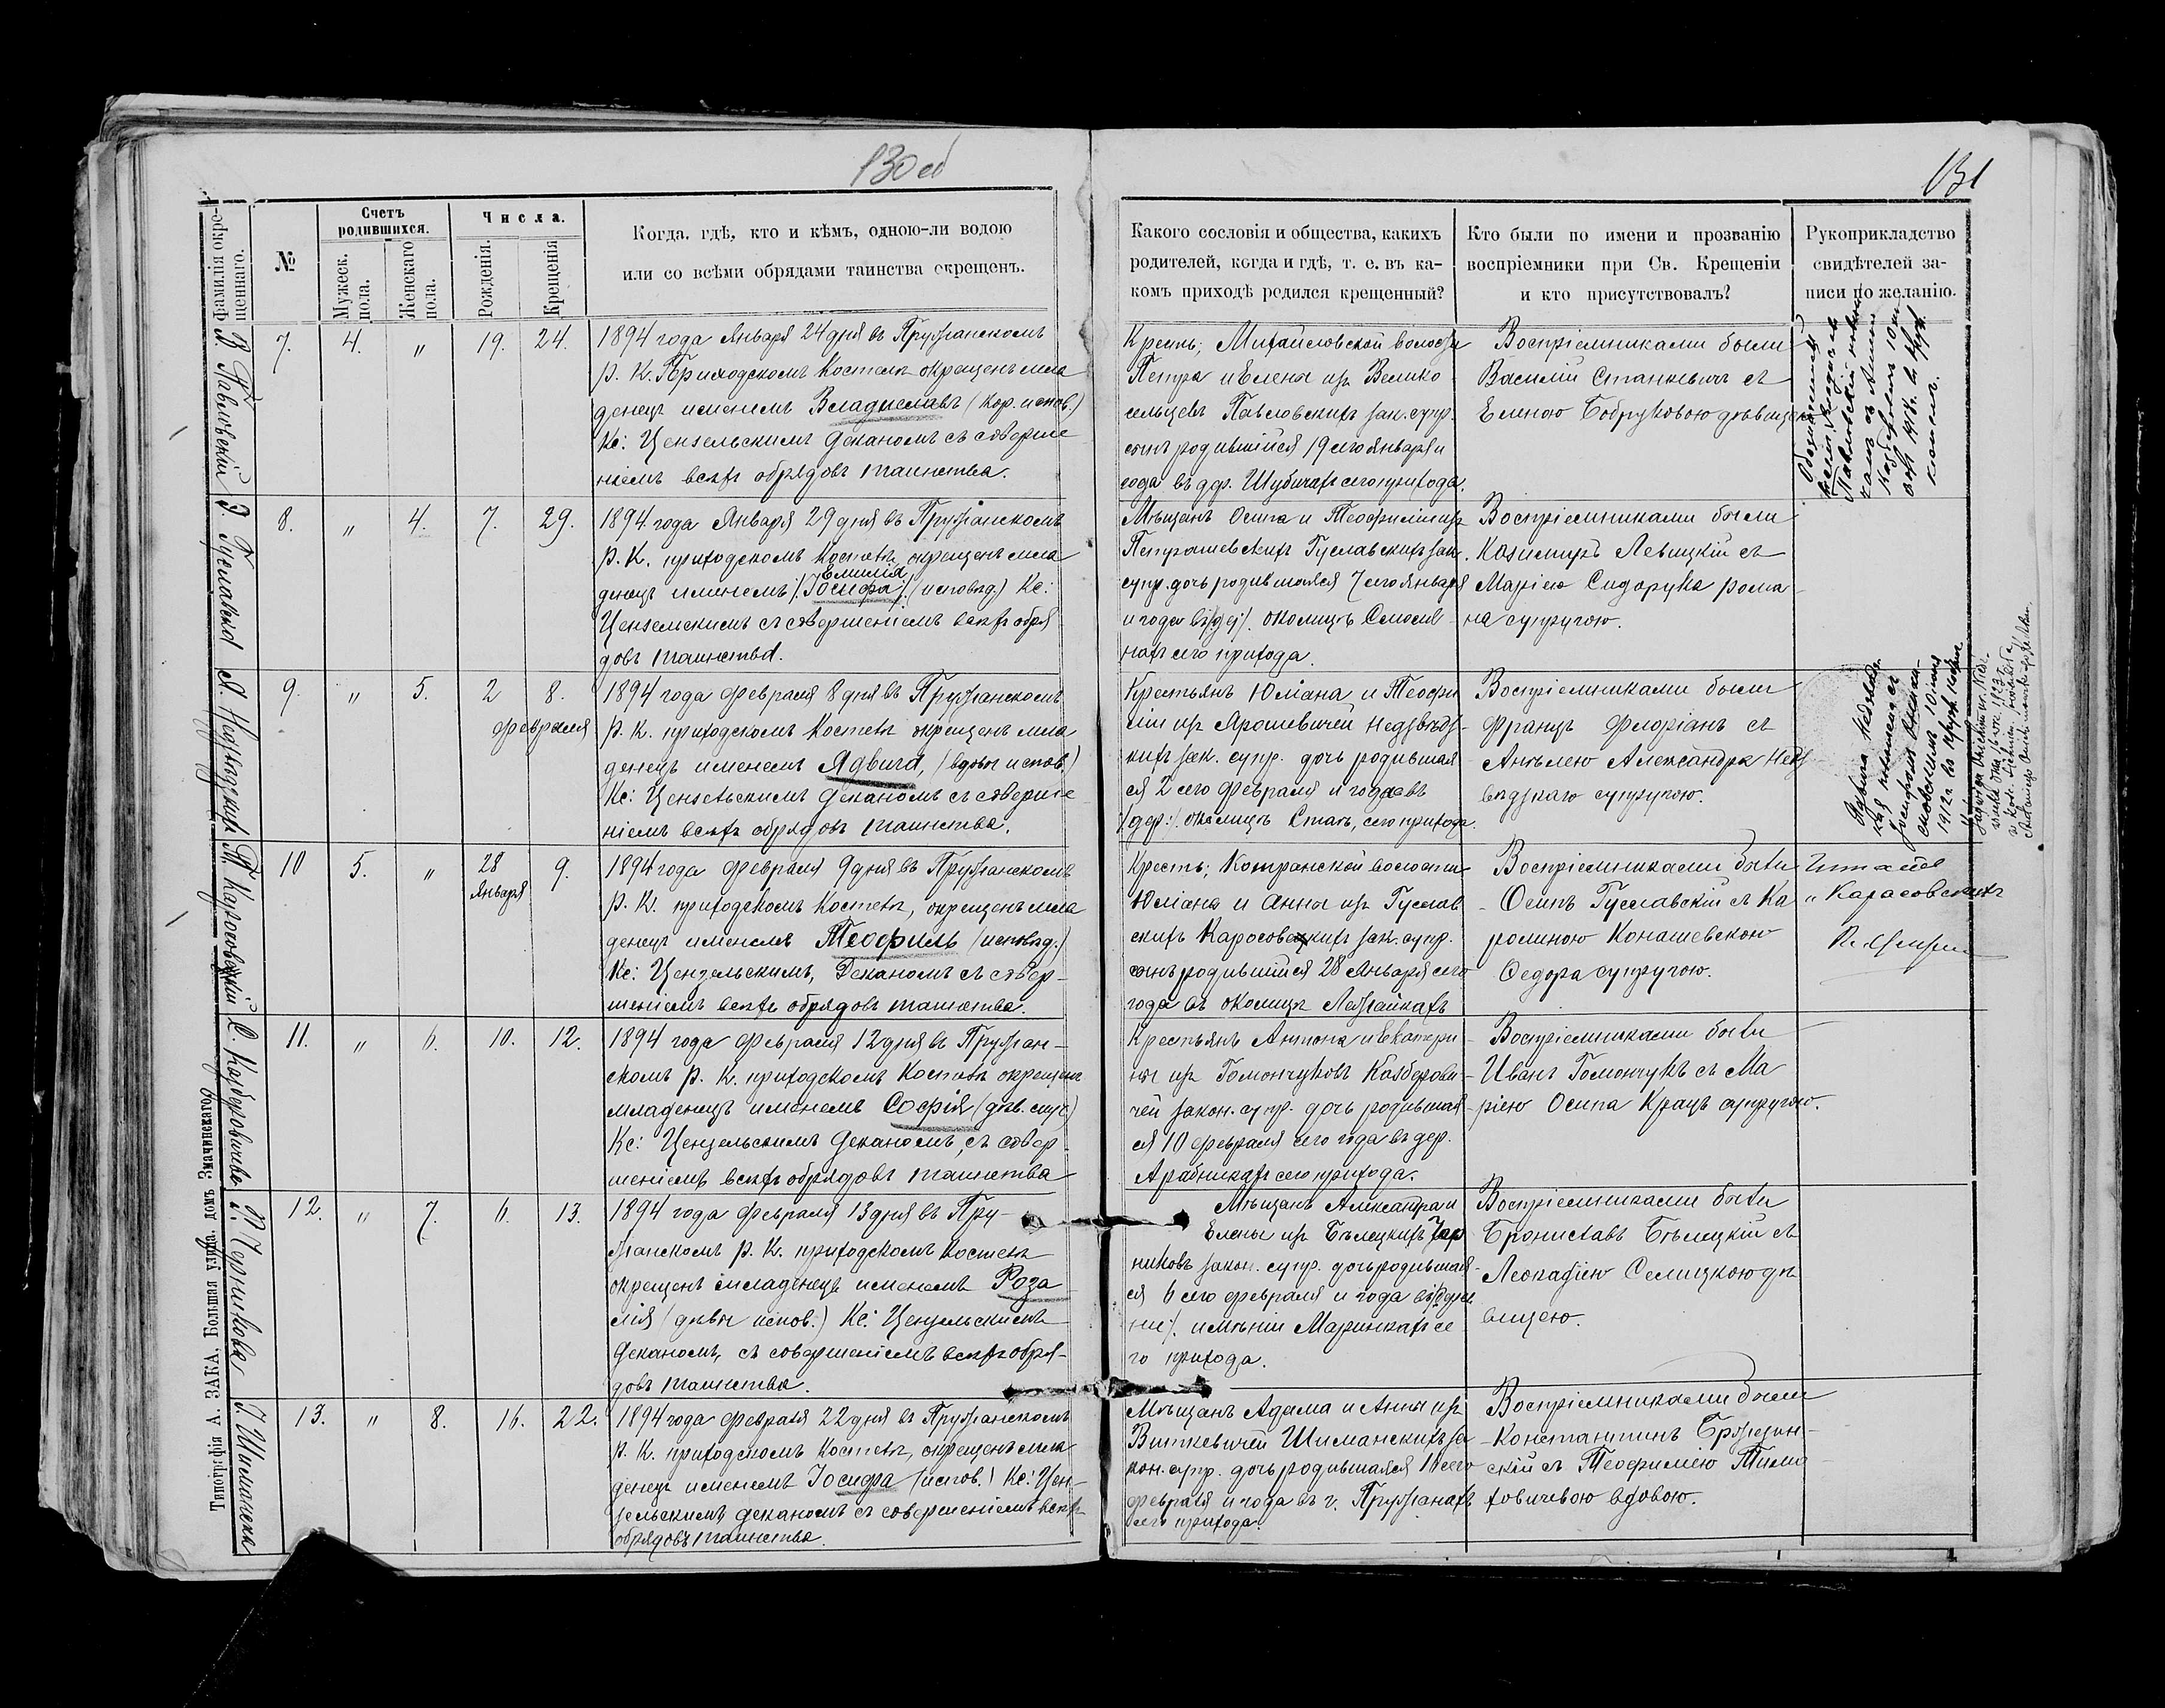 130 об
131
фамилія окре-
щеннаго.
№
Счетъ
родившихся.
Мужеск.
пола.
Женскаго
пола.
Числа.
Рожденія.
Крещенія
Когда, гдѣ, кто и кѣмъ, одною-ли водою
или со всѣми обрядами таинства окрещенъ.
Какого сословія и общества, какихъ
родителей, когда и гдѣ, т. е. въ ка-
комъ приходѣ родился крещенный?
Кто были по имени и прозванію
воспріемники при Св. Крещеніи
и кто присутствовалъ?
Рукоприкладство
свидѣтелей за-
писи по желанію.
В Павловскій
7. 4. " 19. 24.
1894 года Января 24 дня въ Пружанскомъ
р. К. Приходскомъ Костелѣ окрещенъ мла
денецъ именемъ Владиславъ (кор. испов.)
Кс: Цензельскимъ Деканомъ съ соверше
ніемъ всѣхъ обрядовъ таинства.
Крестъ; Михайловской волости
Петра и Елены изъ Велико
сельцевъ Павловскихъ зак. супр.
сынъ родившійся 19 сего января и
года въ др. Шубичахъ сего прихода.
Воспріемниками были
Василій Станкевичъ съ
Еленою Бобруковою дѣвицею
Э. Гуславска
8. " 4. 7. 29.
1894 года Января 29 дня въ Пружанскомъ
р. К. приходскомъ Костелѣ, окрещенъ мла
Емилія
денецъ именемъ /:Іосифа:/ (исповѣд.) Кс:
Цензельскимъ съ совершеніемъ всѣхъ обря
довъ таинства.
Мѣщанъ Осипа и Теофиліи изъ
Петрашевскихъ Гуславскихъ зак.
супр. дочь родившаяся 7 сего января
и года въ /:др:/. околицѣ Смоляни
нахъ сего прихода.
Воспріемниками были
Казимиръ Левицкій съ
Маріею Сидорука Рома
на супругою.
Я. Недзвѣдзкуя
9. " 5. 2 8.
февраля
1894 года февраля 8 дня въ Пружанскомъ
р. К. приходскомъ Костелѣ окрещенъ мла
денецъ именемъ Ядвига, (вдовы испов.)
Кс: Цензельскимъ Деканомъ съ соверше
ніемъ всѣхъ обрядовъ таинства.
Крестьянъ Юліана и Теофи
ліи изъ Ярошевичей Недзвѣдз-
кихъ зак. супр. дочь родившая
ся 2 сего февраля и года въ
/:др:/. околицѣ Стахъ, сего прихода.
Воспріемниками были
Францъ Флоріанъ съ
Анѣлею Александра Недз
вѣдзкаго супругою.
Т. Каросовскій
10 5. " 28 9.
Января
1894 года февраля 9 дня въ Пружанскомъ
р. К. приходскомъ Костелѣ, окрещенъ мла
денецъ именемъ Теофиль (исповѣд.)
Кс: Цензельскимъ, Деканомъ съ совер-
шеніемъ всѣхъ обрядовъ таинства.
Крестъ; Котранской волости
Юліана и Анны изъ Гуслав
скихъ Каросовскихъ зак. супр.
сынъ родившійся 28 Января сего
года въ околицѣ Лежайкахъ
Воспріемниками были
Осипъ Гуславскій съ Ка
ролиною Конашевскою
Ѳедора супругою.
Читать
"Карасовскихъ
С. Козберовичева
11. " 6. 10. 12.
1894 года февраля 12 дня въ Пружан-
скомъ р. К. приходскомъ Костелѣ окрещенъ
младенецъ именемъ Софія (
Кс: Цензельскимъ Деканомъ, съ совер
шеніемъ всѣхъ обрядовъ таинства
Крестьянъ Антона и Екатери
ны изъ Гомончуковъ Козберови
чей закон. супр. дочь родившая
ся 10 февраля сего года въ дер.
Арабникахъ сего прихода.
Воспріемниками были
Иванъ Гомончукъ съ Ма
ріею Осипа Крацъ супругою.
Р. Черникова
12. " 7. 6. 13.
1894 года февраля 13 дня въ Пру-
жанскомъ р. К. приходскомъ Костелѣ
окрещенъ младенецъ именемъ Роза
лія (дѣвы испов.) Кс: Цензельскимъ
Деканомъ, съ совершеніемъ всѣхъ обря-
довъ таинства.
Мѣщанъ Александра и
Елены изъ Бѣлецкихъ Чер
никовъ закон. супр. дочь родившая
ся 6 сего февраля и года въ
имѣніи Маринкахъ се
го прихода.
Воспріемниками были
Брониславъ Бѣлецкій съ
Леокадіею Селицкою дѣ
вицею.
І Шиманска
13. " 8. 16. 22.
1894 года февраля 22 дня въ Пружанскомъ
р. К. приходскомъ Костелѣ, окрещенъ мла
денецъ именемъ Іосифа (испов.) Кс: Цен-
зельскимъ деканомъ съ совершеніемъ всѣхъ
обрядовъ таинства.
Мѣщанъ Адама и Анны изъ
Виткевичей Шиманскихъ за
кон. супр. дочь родившаяся 16 сего
февраля и года въ г. Пружанахъ
сего прихода.
Воспріемниками были
Константинъ Бржезин-
скій съ Теофиліею Тимо
ховичевою вдовою.
Типографія А. ЗАКА, Большая улица, домъ Змачинскаго